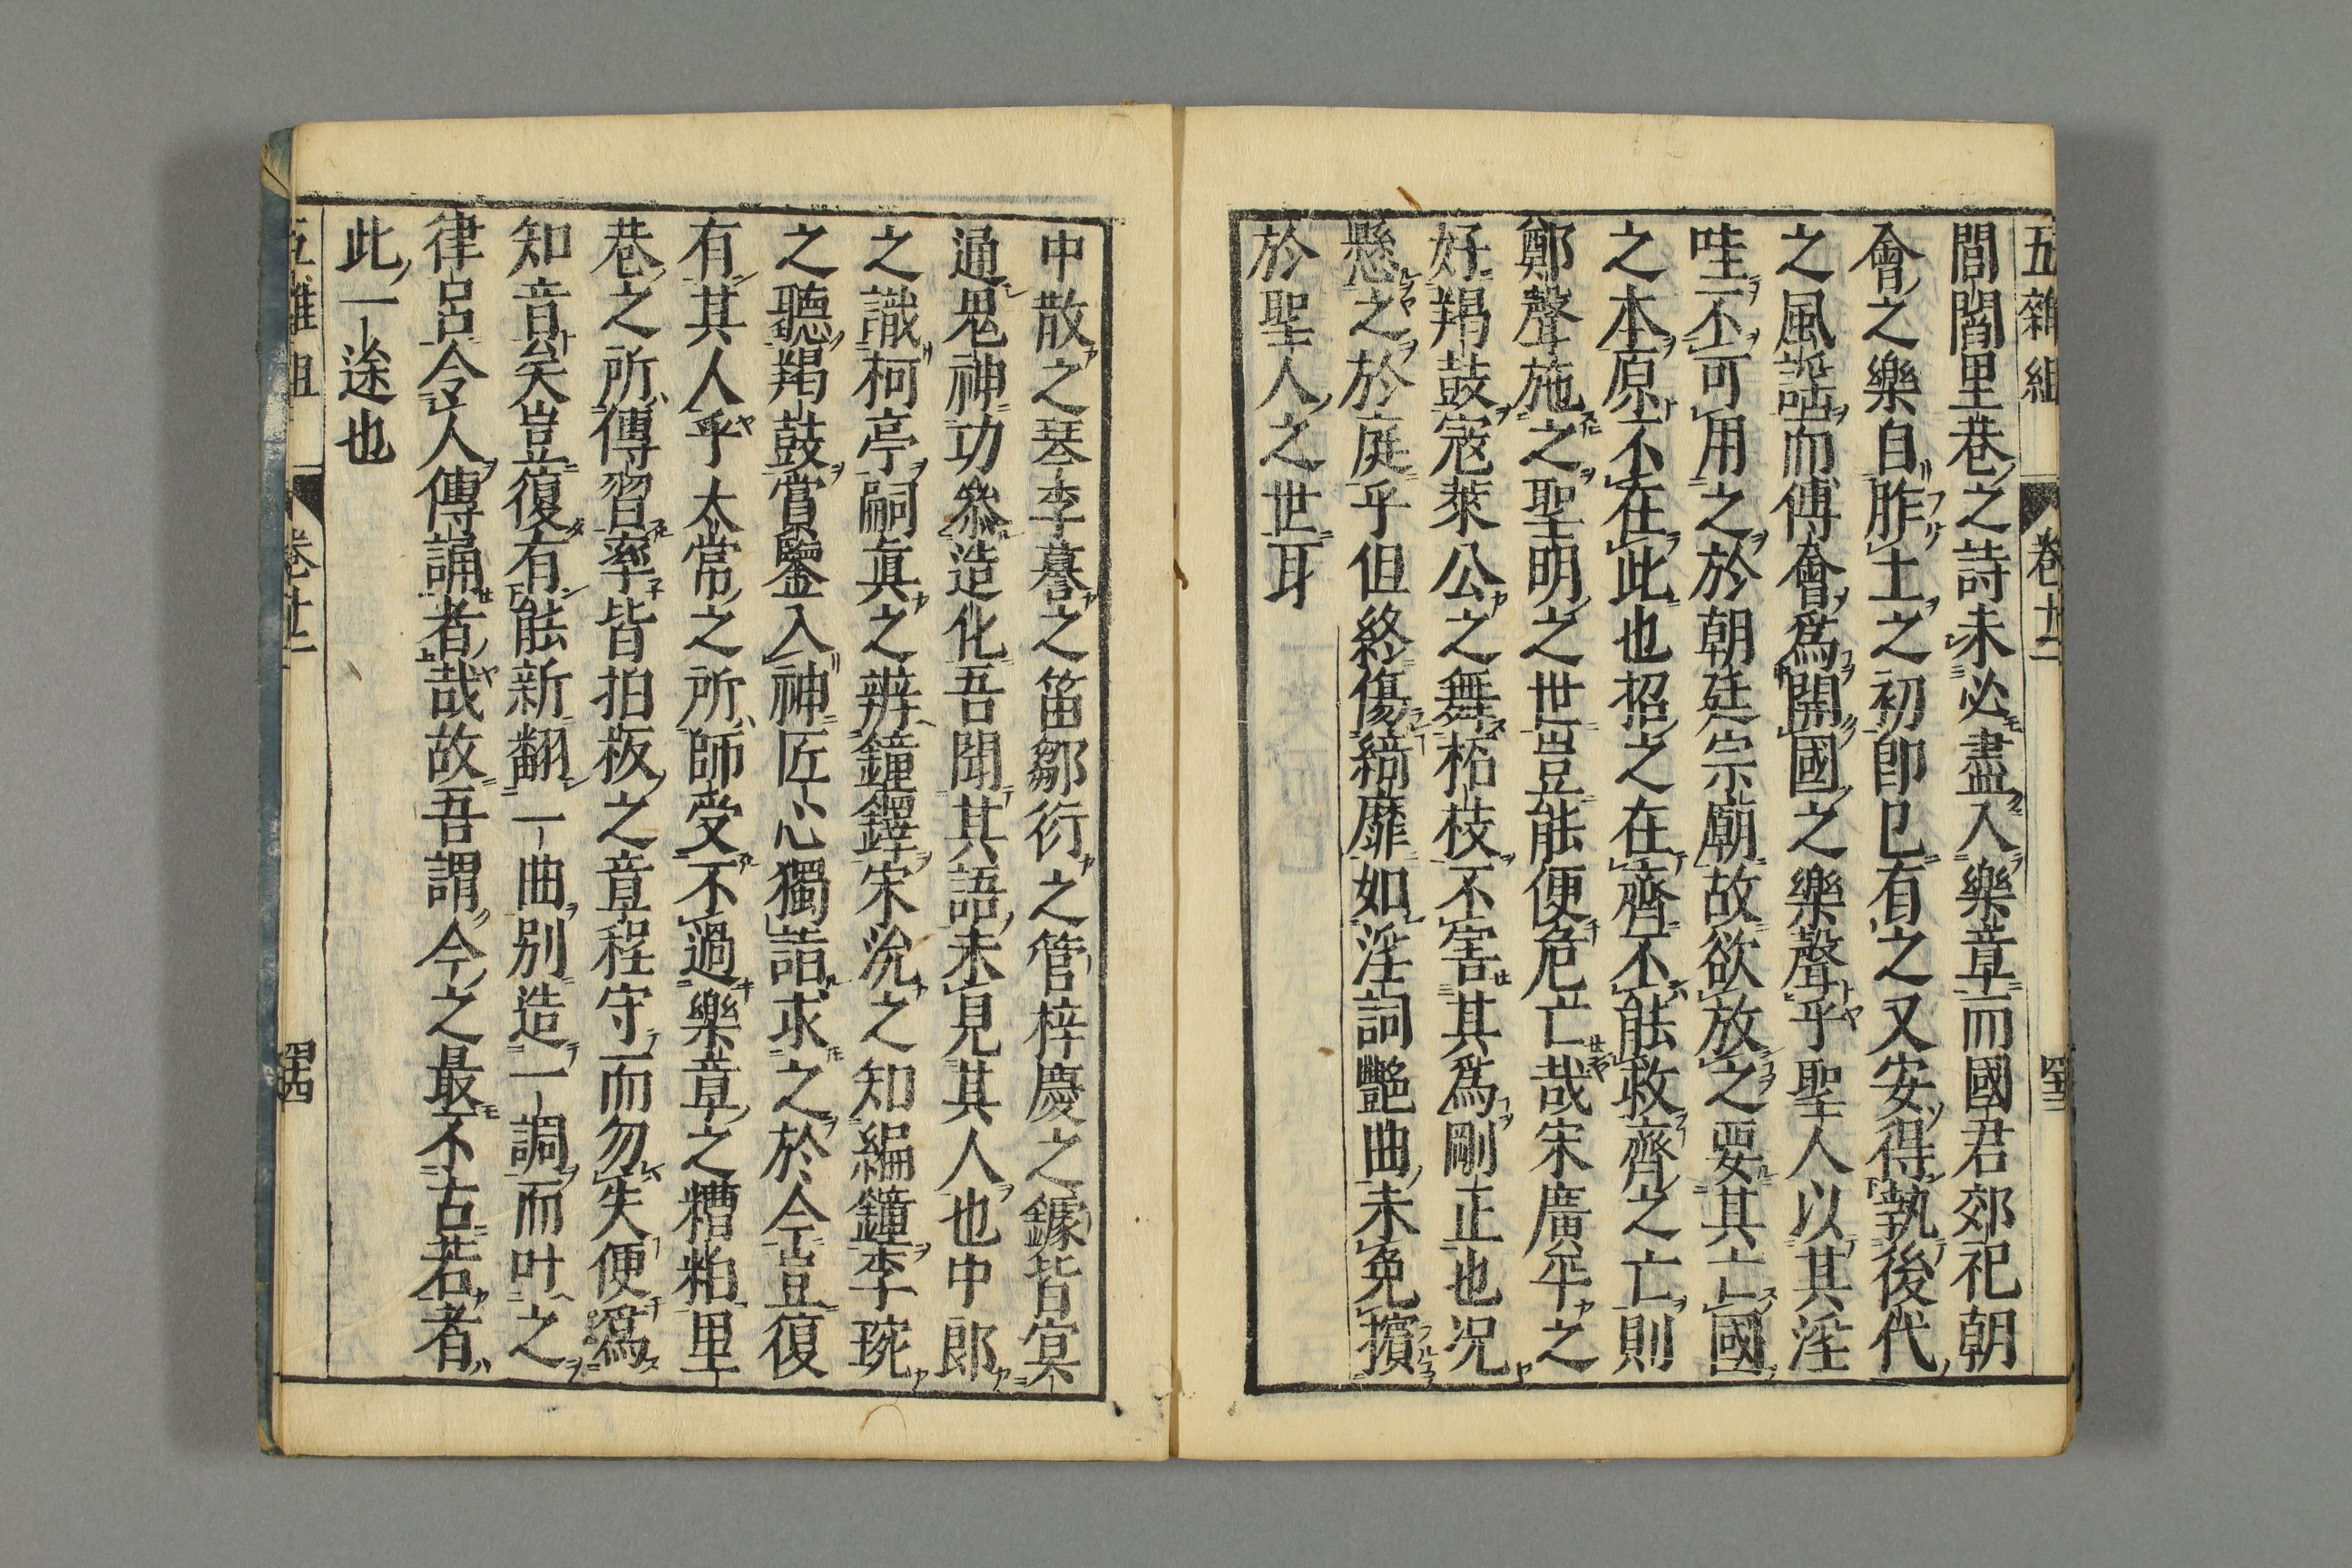 五雜組 卷十二 四十三
閭閻里巷之詩未必盡入樂章而國君郊祀朝
會之樂自胙土之初卽已有之又安得執後代
之風謡而傅會爲開國之樂聲乎聖人以其淫
哇不可用之於朝廷宗廟故欲放之要其亡國
之本原不在此也招之在齊不能救齊之亡則
鄭聲施之聖明之世豈能便危亡哉宋廣平之
好羯鼓寇萊公之舞柘枝不害其爲剛正也况
懸之於庭乎但終傷綺靡如淫詞艷曲未免擯
於聖人之世耳
中散之琴李蟇之笛鄒衍之管梓慶之鐻皆冥
通鬼神功叅造化吾聞其語未見其人也中郎
之識柯亭嗣眞之辨鐘鐸宋沇之知編鐘李琬
之聽羯鼓賞鑒入神匠心獨詣求之於今豈復
有其人乎太常之所師受不過樂章之糟粕里
巷之所傳習率皆拍板之章程守而勿失便爲
知音矣豈復有能新翻一曲別造一調而叶之
律呂令人傳誦者哉故吾謂今之最不古若者
此一途也
五雜組 卷十二 四十四